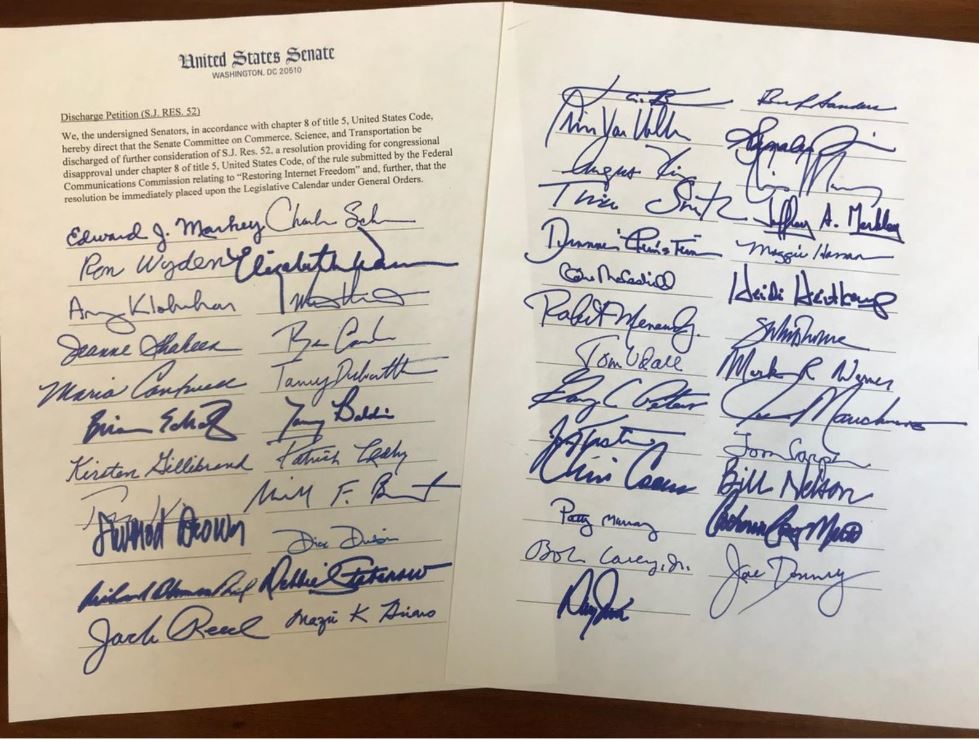 United States Senate
WASHINGTON, DC 20510
Discharge Petition (S.J. RES. 52)
We, the undersigned Senators, in accordance with chapter 8 of title 5, United States Code,
hereby direct that the Senate Committee on Commerce, Science, and Transportation be
discharged of further consideration of S.J. Res. 52, a resolution providing for congressional
disapproval under chapter 8 of title 5, United States Code, of the rule submitted by the Federal
Communications Commission relating to “Restoring Internet Freedom” and, further, that the
resolution be immediately placed upon the Legislative Calendar under General Orders.
Edward J. Markey
Ron Wyden Elizabeth Warren
Amy Klobuchar
Jeanne Shaheen Ben Cardin
Maria Cantwell Tammy Duckworth
Brian Schatz Tammy Baldwin
Kirsten Gillibrand Patrick Leahy
Sherrod Brown
Richard Blumenthal Debbie Stabenow
Jack Reed Mazie K Hirono
Bernard Sanders
Chris Van Hollen
Angus King
Tina Smith Jeffrey A. Merkley
Dianne Feinstein Maggie Hassan
Claire McCaskill Heidi Heitkamp
Robert Menendez
Tom Udall Mark R Warner
Gary C Peters Joe Manchin
Jon Tester Tom Carper
Chris Coons Bill Nelson
Patty Murray Catherine Cortez Masto
Bob Casey, Jr. Joe Donnelly